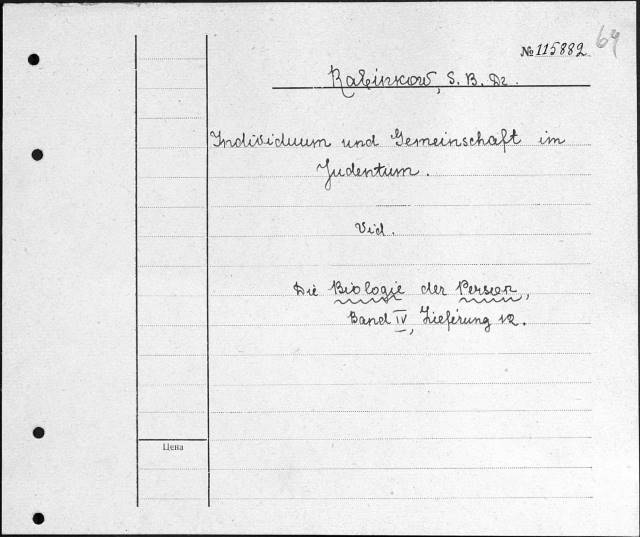 № 115882 69
Rabinkow, S. B. Dr.
Individuum und Gemeinschaft im
Judentum.
Vid.
Die Biologie der Person,
Band IV, Lieferung 12.
Цена